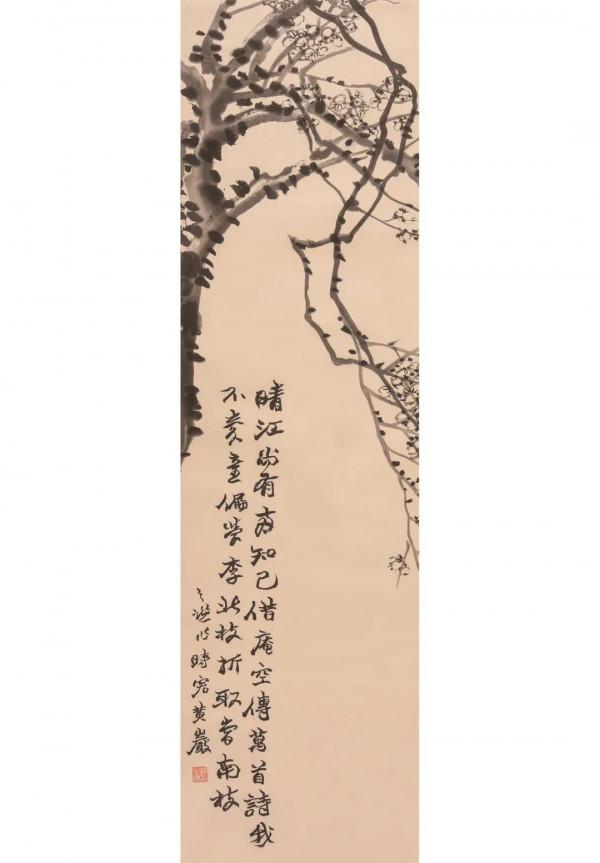 晴江尚有知己借庵空傳萬首詩我
不愛童偏學李北枝折取當南枝
之作時客黃巖